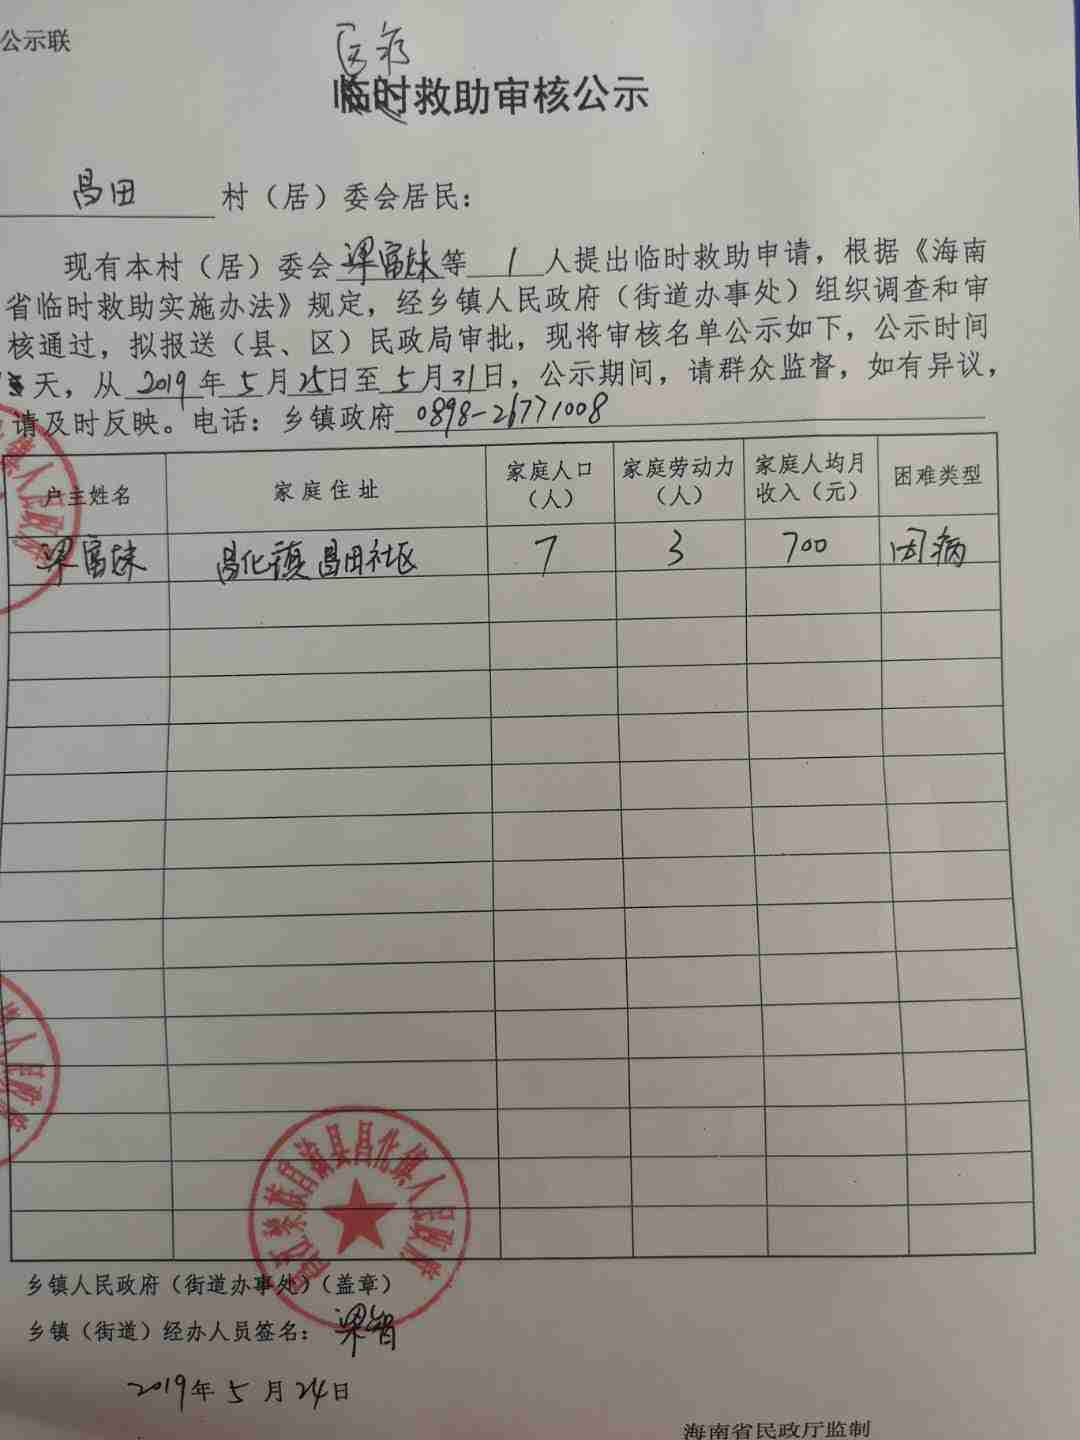 公示联
医疗
临时救助审核公示
昌田 村（居）委会居民：
现有本村（居）委会梁富妹等 1 人提出临时救助申请，根据《海南
省临时救助实施办法》规定，经乡镇人民政府（街道办事处）组织调查和审
核通过，拟报送（县、区）民政局审批，现将审核名单公示如下，公示时间
天，从 2019 年 5 月 25 日至 5 月 31 日，公示期间，请群众监督，如有异议，
请及时反映。电话：乡镇政府 0898-26771008
户主姓名 家庭住址 家庭人口（人） 家庭劳动力（人） 家庭人均月收入（元） 困难类型
梁富妹 昌化镇昌田社区 7 3 700 因病
昌江黎族自治县昌化镇人民政府
乡镇人民政府（街道办事处）（盖章）
乡镇（街道）经办人员签名：梁智
2019年 5 月 24 日
海南省民政厅监制